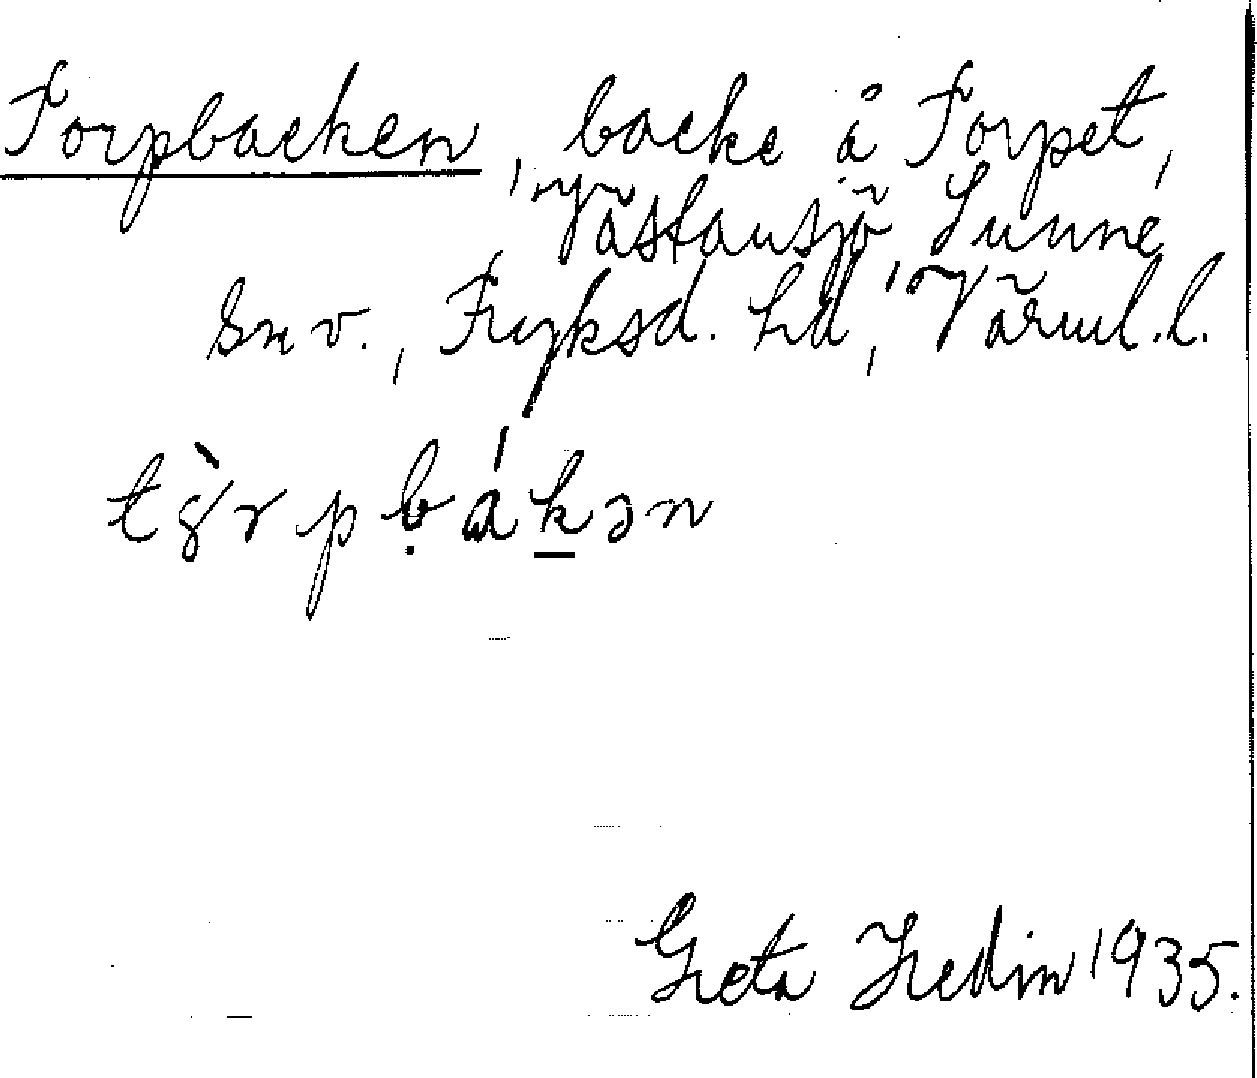 Torpbacken, backe å Torpet,
Västansjö, Sunne
sn v., Fryksd. hd, Värml. l.
tȣ̀rpḅák̲ən
Greta Hedin 1935.